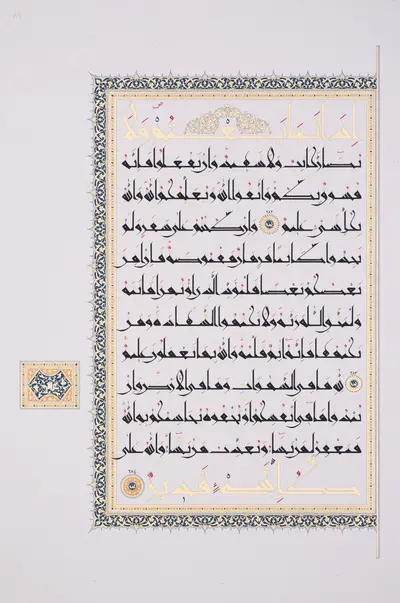 إذا تبايعتم ولا
يضار كاتب ولا شهيد وإن تفعلوا فإنه
فسوق بكم واتقوا الله ويعلمكم الله والله
بكل شيء عليم ٢٨٢ وإن كنتم على سفر ولم
تجدوا كاتبا فرهن مقبوضة فإن أمن
بعضكم بعضا فليؤد الذي اؤتمن أمنته
وليتق الله ربه ولا تكتموا الشهدة ومن
يكتمها فإنه آثم قلبه والله بما تعملون عليم
٢٨٣ لله ما في السموات وما في الأرض وإن
تبدوا ما في أنفسكم أو تخفوه يحاسبكم به الله
فيغفر لمن يشاء ويعذب من يشاء والله على
كل شيء قدير ٢٨٤